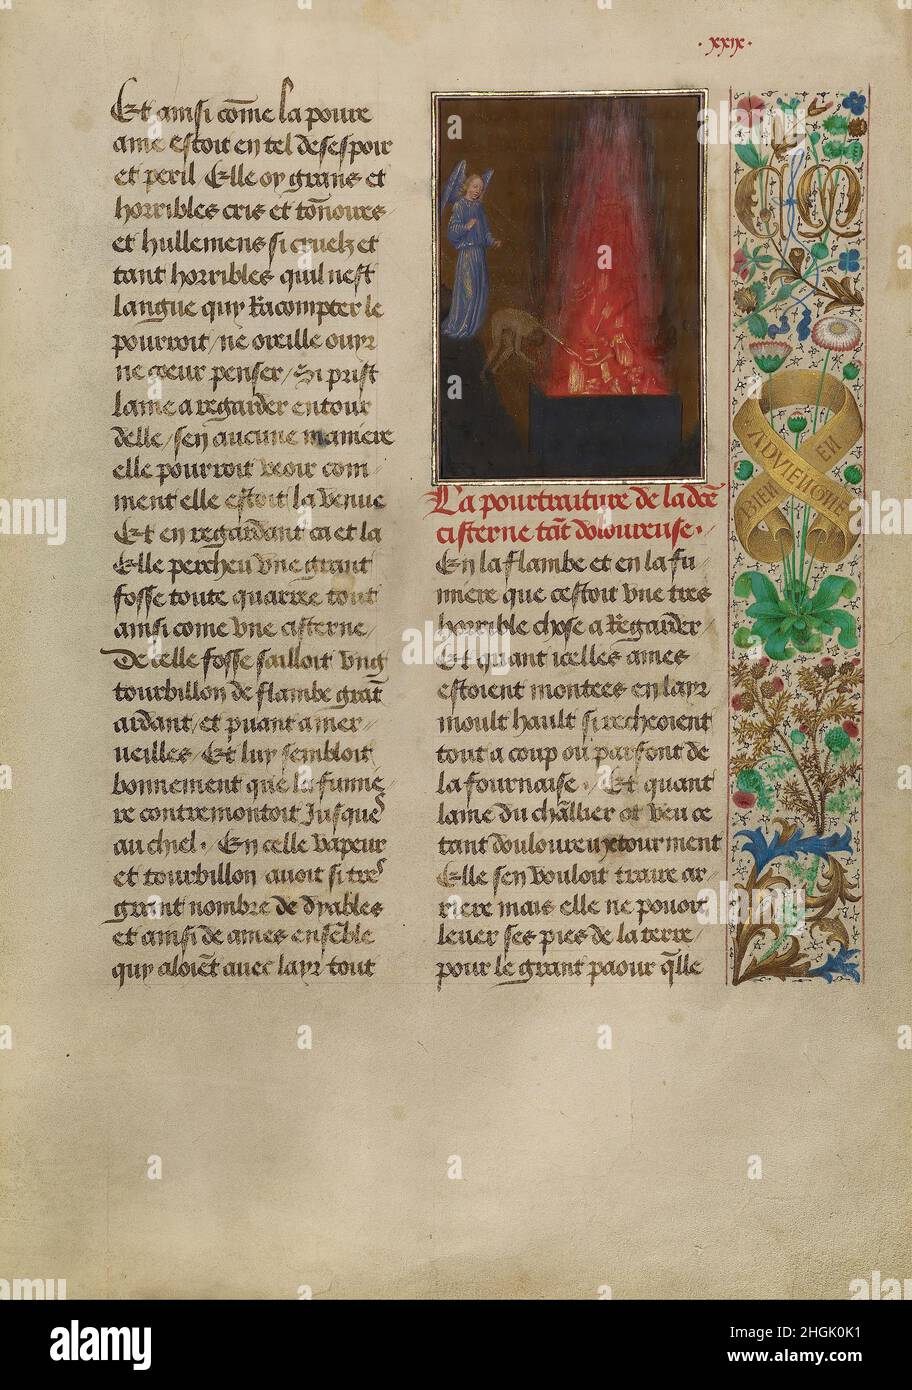 ·xxix·
Et ainsi co̅me la poure
ame estoit en tel desespoir
et peril / Elle oy grans et
horribles cris et to̅noires
et hullemens si cruelz et
tant horribles quil nest
langue quy Racompter le
pourroit / ne oreille ouyr
ne coeur penser / Si prist
lame a regarder entour
delle / sen aucune maniere
elle pourroit veoir com-
ment elle estoit la venue
Et en regardant ca et la
Elle percheu vne grant
fosse toute quarree tout
ainsi come vne cisterne /
De celle fosse sailloit vng
tourbillon de flambe gra̅t
ardant / et puant a mer-
ueilles / Et luy sembloit
bonnement que la fumie-
re contremontoit Jusques
au chiel · En celle vapeur
et tourbillon auoit si tres
grant nombre de dyables
et ainsi de ames ense̅ble
quy aloie̅t auec layr tout
La pourtraiture de la dce
cisterne ta̅t doloureuse ·
En la flambe et en la fu-
miere que cestoit vne tres
horrible chose a Regarder
Et quant icelles ames
estoient montees en layr
moult hault si recheoient
tout a coup ou parfont de
la fournaise · Et quant
lame du challier ot veu ce
tant douloureux tourment
Elle sen vouloit traire ar-
riere mais elle ne pouoit
leuer ses pies de la terre /
pour le grant paour qlle
BIEN EN ADVIENGNE
CM
alamy
Image ID: 2HGK0K1
www.alamy.com